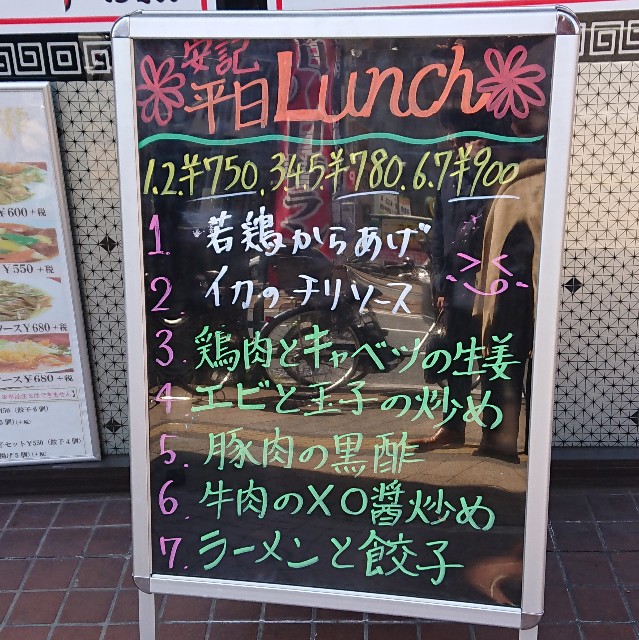 安記
平日Lunch
1.2.¥750.345¥780.6.7¥900
1. 若鶏からあげ
2. イカのチリソース
3. 鶏肉とキャベツの生姜
4. エビと玉子の炒め
5. 豚肉の黒酢
6. 牛肉のXO醤炒め
7. ラーメンと餃子
¥600+税
¥550+税
ース¥680+税
ース¥680+税